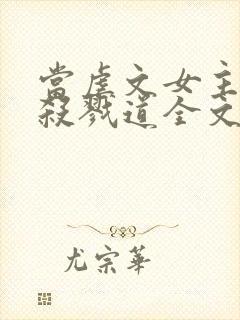 當虐文女主
殺戮道全文
尤宗華